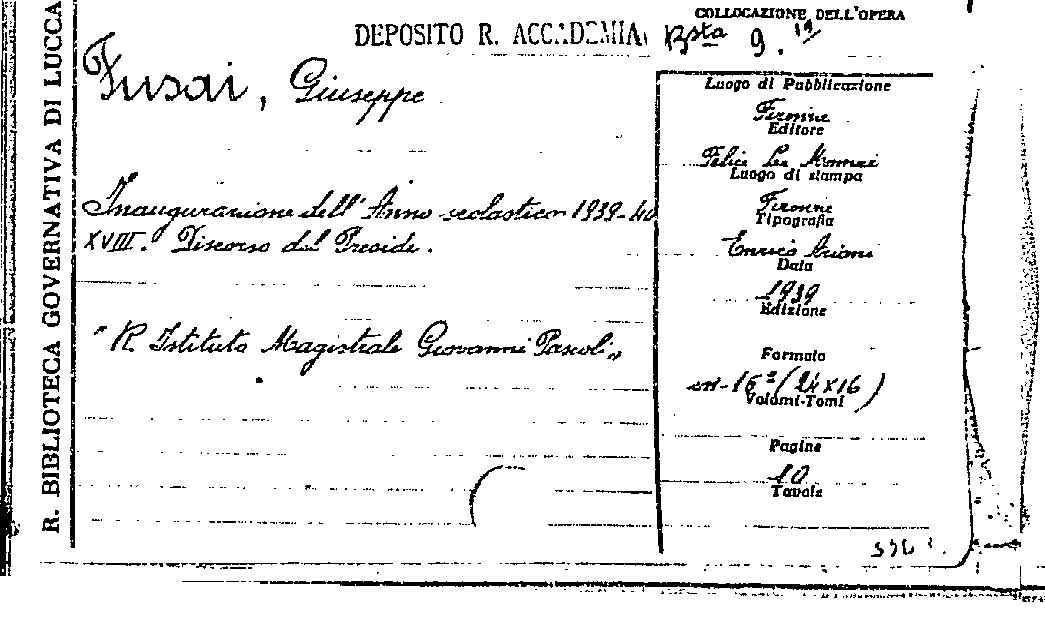 COLLOCAZIONE DELL'OPERA
DEPOSITO R. ACCADEMIA
Bsta 9.
R. BIBLIOTECA GOVERNATIVA DI LUCCA
Fusai, Giuseppe
Inaugurazione dell'Anno scolastico 1939-40
XVIII. Discorso del Preside.
"R. Istituto Magistrale Giovanni Pascoli"
Luogo di Pubblicazione
Firenze
Editore
Felice Le Monnier
Luogo di stampa
Firenze
Tipografia
Enrico Ariani
Data
1939
Edizione
Formato
in-16° (24x16)
Volumi-Tomi
Pagine
10
Tavole